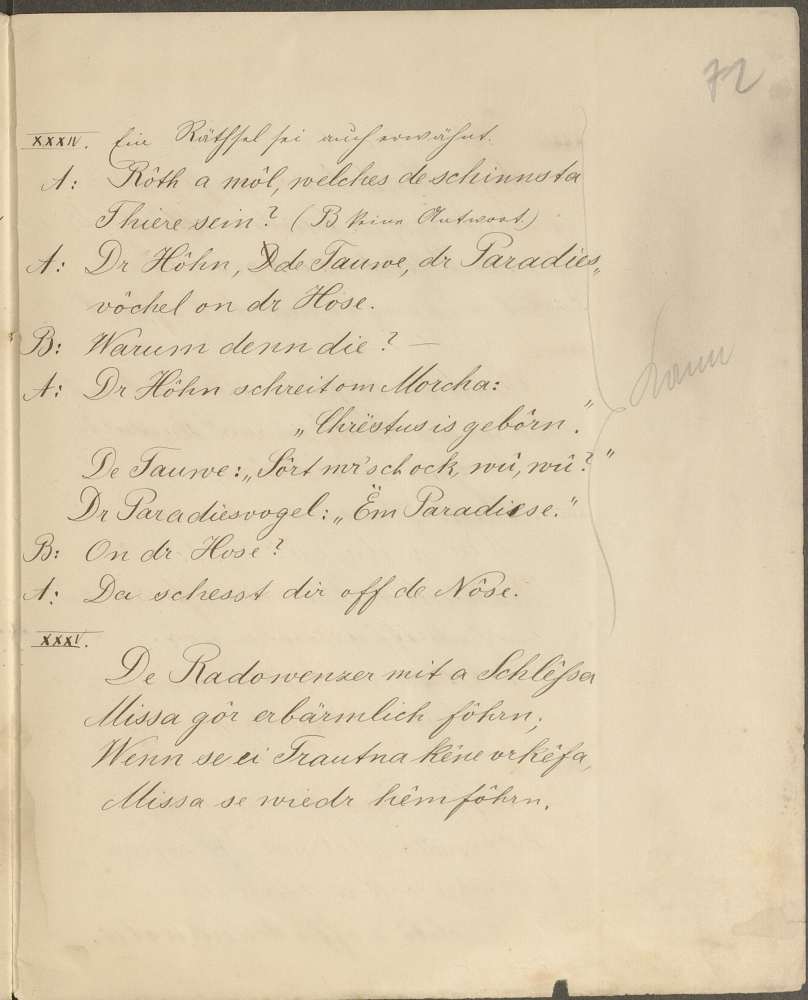 72
XXXIV. Ein Räthsel sei auch erwähnt.
A: Rôth a môl, welches de schinnsta
Thiere sein? (B keine Antwort)
A: Dr Hôhn, de Tauwe, dr Paradies„
vôchel on dr Hose.
B: Warum denn die? —
A: Dr Hôhn schreit om Morcha:
„Chrëstus is gebôrn."
De Tauwe: „Sôrt mr's chock, wû, wû?"
Dr Paradiesvogel: „Ëm Paradiese."
B: On dr Hose?
A: Da schesst dir off de Nôse.
XXXV.
De Radowenzer mit a Schlêssa
Missa gôr erbärmlich fôhrn;
Wenn se ei Trautna kêne vrkêfa,
Missa se wiedr hêmfôhrn.